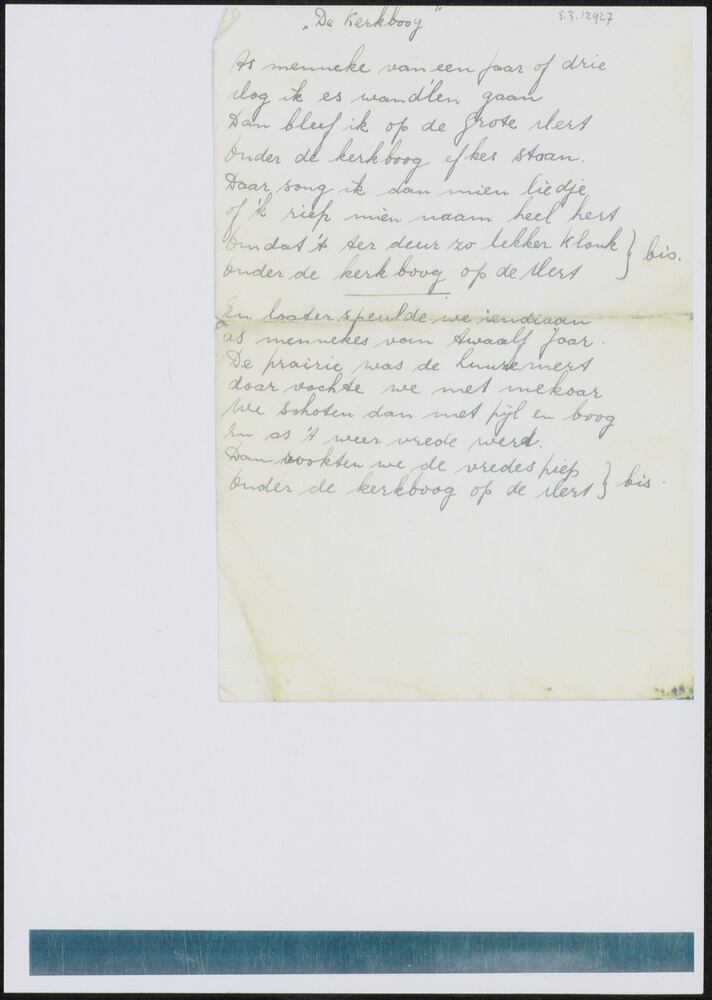 „De Kerkboog"
S.3.12927
As menneke van een jaar of drie
Mog ik es wand'len gaan
Dan bleef ik op de grote Mert
Onder de kerkboog efkes staan.
Daar song ik dan mien liedje
of 'k riep mien naam heel hert
Omdat 't ter deur zo lekker klonk } bis.
onder de kerkboog op de Mert
En laater speulde we iendiaan
as mennekes van twaalf jaor.
De prairie was de
daar vochte we met mekaar
We schoten dan met pijl en boog
En as 't weer vrede werd.
Dan rookten we de vredespiep } bis.
Onder de kerkboog op de Mert